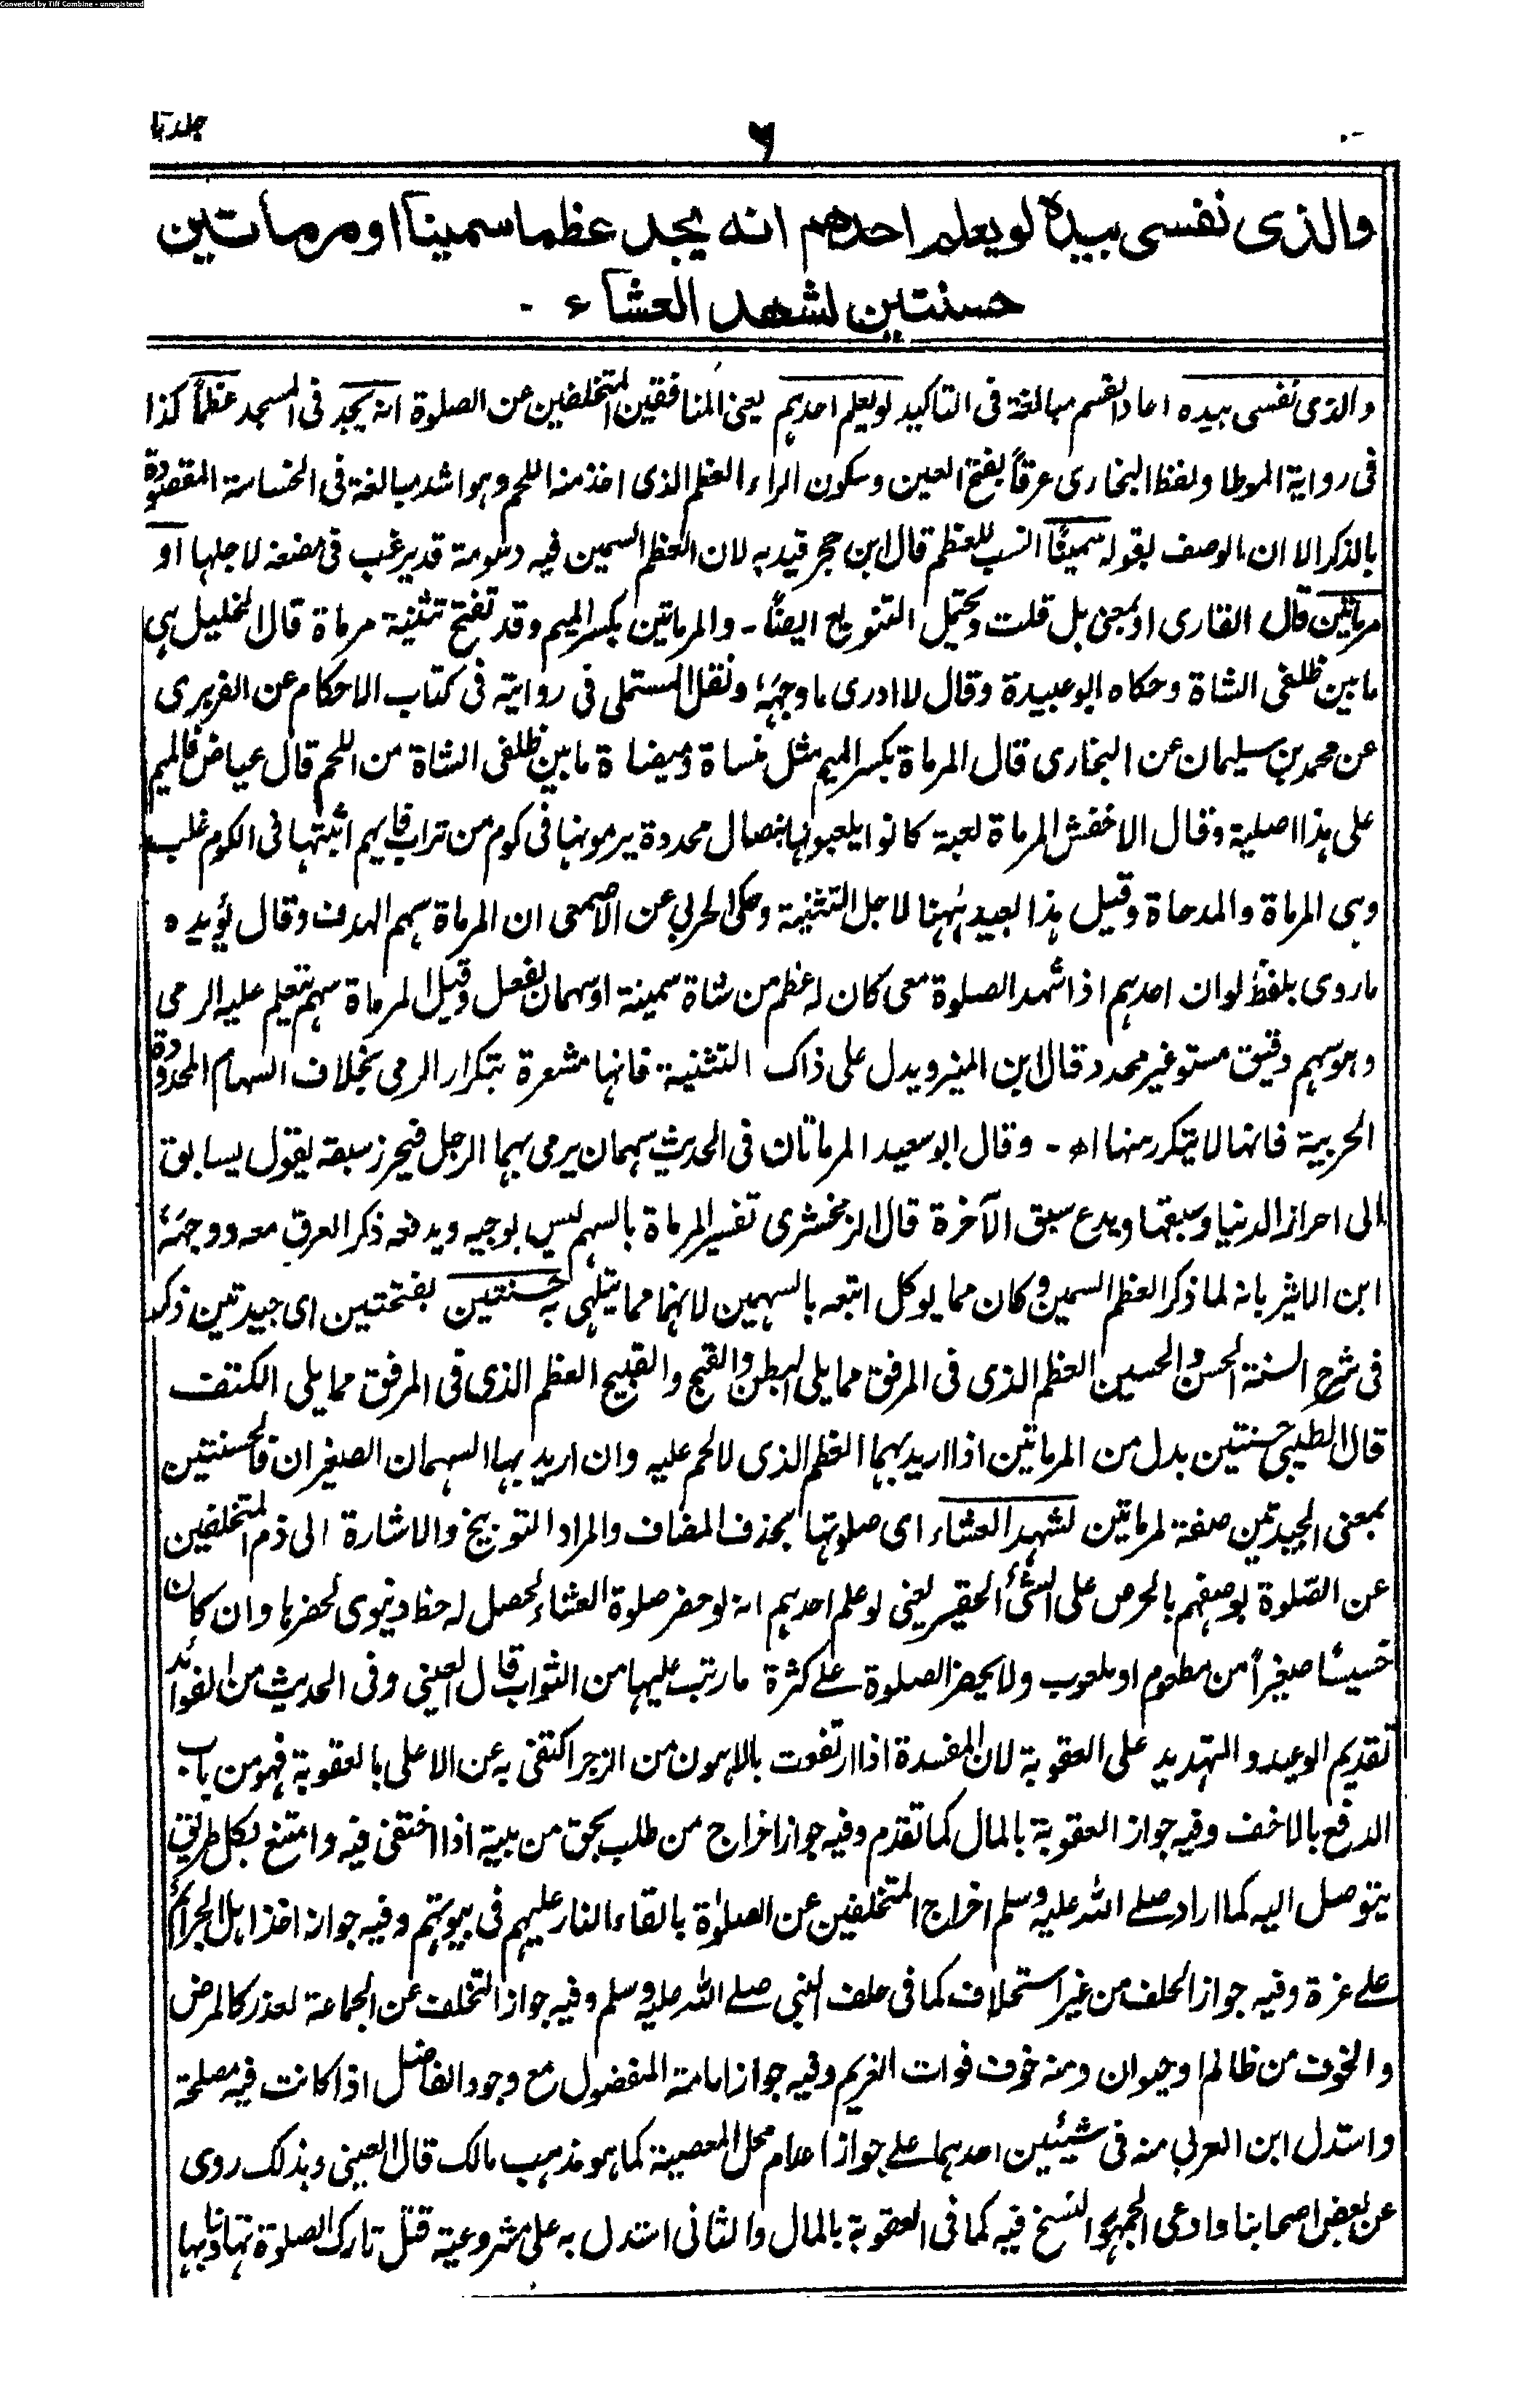 Converted by Tiff Combine - unregistered
جلد ٢
٦
والذی نفسی بیدہ لو یعلم احدهم انه یجد عظما سمینا او مرماتین
حسنتین لشهد العشاء -
والذی نفسی بیده اعاد القسم مبالغة فی التاکید لو یعلم احدہم یعنی المنافقین المتخلفین عن الصلوة انہ یجد فی المسجد عظماً کذا
فی روایة الموطا ولفظ البخاری عرقاً بفتح العین وسکون الراء العظم الذی اخذ منہ اللحم وہو اشد مبالغة فی الخساسة المقصودة
بالذکر الا ان الوصف بقولہ سمیناً انسب للعظم قال ابن حجر قید بہ لان العظم السمین فیہ دسومة قد یرغب فی مضغہ لاجلہا او
مرماتین قال القاری او بمعنی بل قلت ویحتمل التنویع ایضاً - والمرماتین بکسر المیم وقد تفتح تثنیة مرماة قال الخلیل ہی
ما بین ظلفی الشاة وحکاہ ابو عبیدة وقال لا ادری ما وجہہ ونقل المستملی فی روایتہ فی کتاب الاحکام عن الفربری
عن محمد بن سلیمان عن البخاری قال المرماة بکسر المیم مثل منساة ومیضاة ما بین ظلفی الشاة من اللحم قال عیاض فالمیم
علی ہذا اصلیة وقال الاخفش المرماة لعبة کانوا یلعبونہا بنصال محددة یرمونہا فی کوم من تراب فایہم اثبتہا فی الکوم غلب
وہی المرماة والمدحاة وقیل ہذا بعید ہٰہنا لاجل التثنیة وحکی الحربی عن الاصمعی ان المرماة سہم الہدف وقال یؤیدہ
ما روی بلفظ لو ان احدہم اذا شہد الصلوة معی کان لہ عظم من شاة سمینة او سہمان لفعل وقیل المرماة سہم یتعلم علیہ الرمی
وہو سہم دقیق مستو غیر محدد قال ابن المنیر ویدل علی ذاک التثنیة فانہا مشعرة بتکرار الرمی بخلاف السہام المحددة
الحربیة فانہا لا یتکرر منہا اھ - وقال ابو سعید المرماتان فی الحدیث سہمان یرمی بہما الرجل فیحرز سبقہ یقول یسابق
الی احراز الدنیا وسبقہا ویدع سبق الآخرة قال الزمخشری تفسیر المرماة بالسہم لیس بوجیہ ویدفعہ ذکر العرق معہ ووجہہ
ابن الاثیر بانہ لما ذکر العظم السمین وکان مما یوکل اتبعہ بالسہمین لانہما مما یتلہی بہ حسنتین بفتحتین ای جیدتین ذکر
فی شرح السنة الحسن والحسین العظم الذی فی المرفق مما یلی البطن والقبح والقبیح العظم الذی فی المرفق مما یلی الکتف
قال الطیبی حسنتین بدل من المرماتین اذا ارید بہما العظم الذی لا لحم علیہ وان ارید بہا السہمان الصغیران فالحسنتین
بمعنی الجیدتین صفة لمرماتین لشہد العشاء ای صلوتہا بحذف المضاف والمراد التوبیخ والاشارة الی ذم المتخلفین
عن الصّلوة بوصفہم بالحرص علی الشئ الحقیر یعنی لو علم احدہم انہ لو حضر صلوة العشاء لحصل لہ حظ دنیوی لحضرہا وان کان
خسیسًا صغیراً من مطعوم او ملعوب ولا یحضر الصلوة علی کثرة ما رتب علیہا من الثواب قال العینی وفی الحدیث من الفوائد
تقدیم الوعید والتہدید علی العقوبة لان المفسدة اذا ارتفعت بالاہون من الزجر اکتفی بہ عن الاعلی بالعقوبة فہو من باب
الدفع بالاخف وفیہ جواز العقوبة بالمال کما تقدم وفیہ جواز اخراج من طلب بحق من بیتہ اذا اختفی فیہ وامتنع بکل طریق
یتوصل الیہ کما اراد صلے اللہ علیہ وسلم اخراج المتخلفین عن الصلوٰة بالقاء النار علیہم فی بیوتہم وفیہ جواز اخذ اہل الجرائم
علے غرة وفیہ جواز الحلف من غیر استحلاف کما فی حلف النبی صلے اللہ علیہ وسلم وفیہ جواز التخلف عن الجماعة لعذر کالمرض
والخوف من ظالم او حیوان ومنہ خوف فوات الغریم وفیہ جواز امامة المفضول مع وجود الفاضل اذا کانت فیہ مصلحة
واستدل ابن العربی منہ فی شیئین احدہما علے جواز اعدام محل المعصیة کما ہو مذہب مالک قال العینی وبذلک روی
عن بعض اصحابنا وادعی الجمہور النسخ فیہ کما فی العقوبة بالمال والثانی استدل بہ علی مشروعیة قتل تارک الصلوة تہاونا بہا